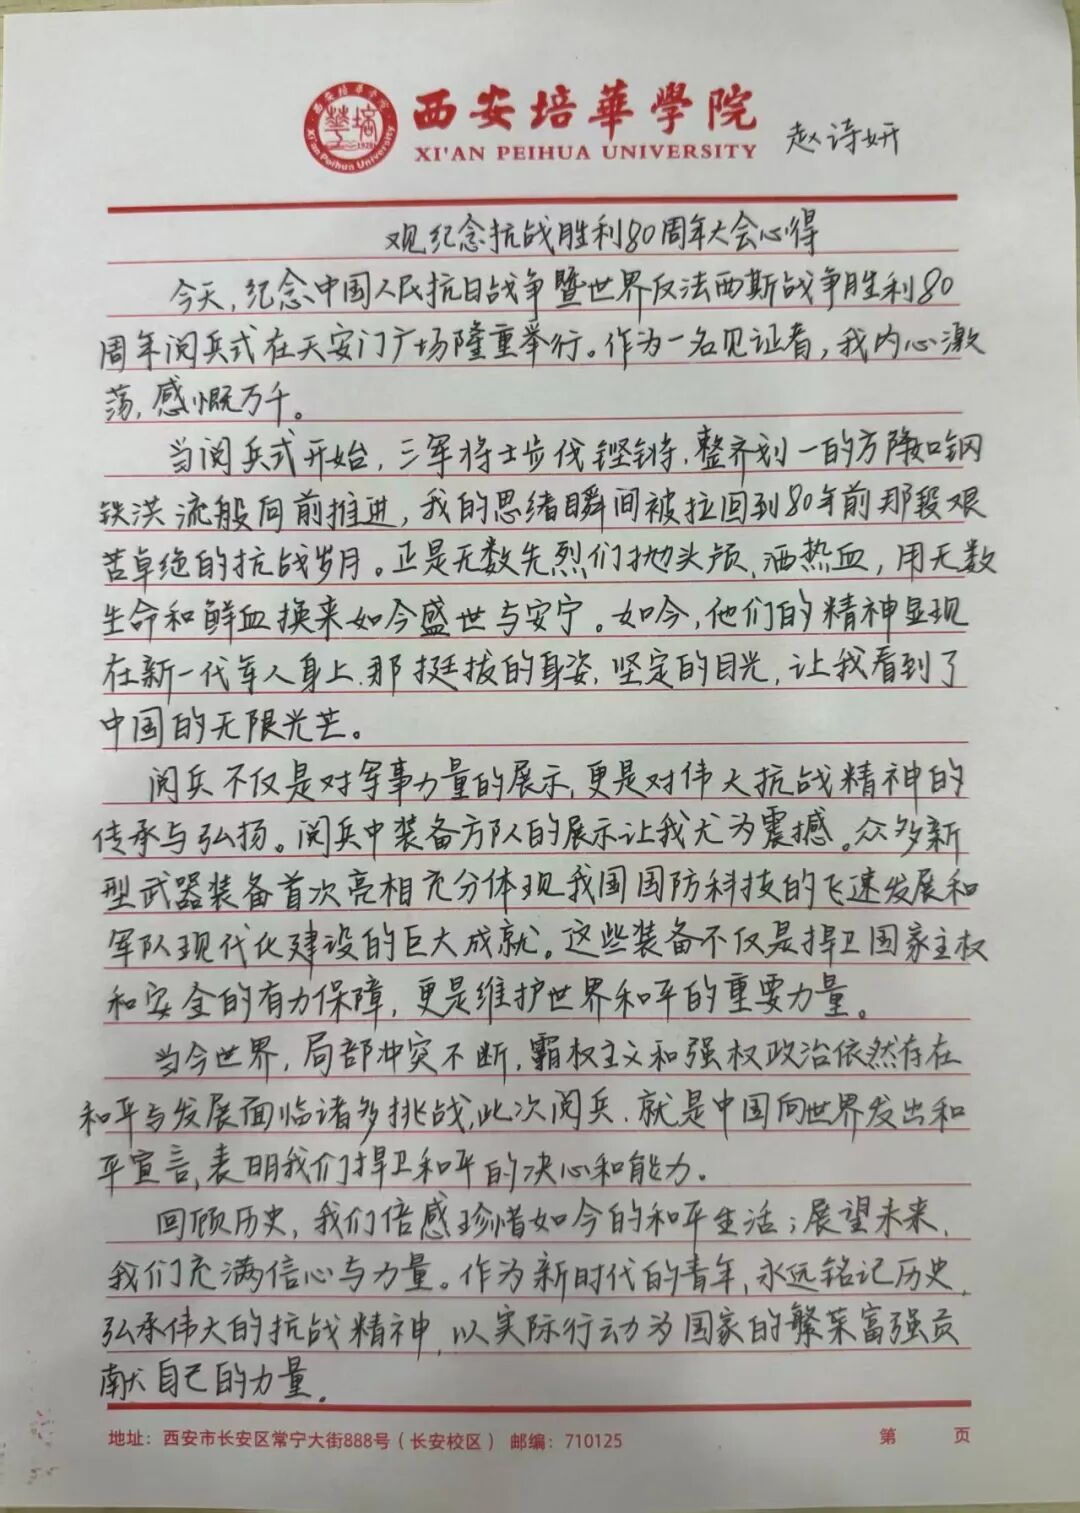 西安培華學院
XI'AN PEIHUA UNIVERSITY
西安培華學院
Xi'an Peihua University
1928
赵诗妍
观纪念抗战胜利80周年大会心得
今天,纪念中国人民抗日战争暨世界反法西斯战争胜利80
周年阅兵式在天安门广场隆重举行。作为一名见证者,我内心激
荡,感慨万千。
当阅兵式开始,三军将士步伐铿锵,整齐划一的方阵如钢
铁洪流般向前推进,我的思绪瞬间被拉回到80年前那段艰
苦卓绝的抗战岁月。正是无数先烈们抛头颅、洒热血,用无数
生命和鲜血换来如今盛世与安宁。如今,他们的精神显现
在新一代军人身上,那挺拔的身姿,坚定的目光,让我看到了
中国的无限光芒。
阅兵不仅是对军事力量的展示,更是对伟大抗战精神的
传承与弘扬。阅兵中装备方队的展示让我尤为震撼。众多新
型武器装备首次亮相充分体现我国国防科技的飞速发展和
军队现代化建设的巨大成就。这些装备不仅是捍卫国家主权
和安全的有力保障,更是维护世界和平的重要力量。
当今世界,局部冲突不断,霸权主义和强权政治依然存在
和平与发展面临诸多挑战,此次阅兵,就是中国向世界发出和
平宣言,表明我们捍卫和平的决心和能力。
回顾历史,我们倍感珍惜如今的和平生活;展望未来,
我们充满信心与力量。作为新时代的青年,永远铭记历史,
弘承伟大的抗战精神,以实际行动为国家的繁荣富强贡
献自己的力量.
地址:西安市长安区常宁大街888号(长安校区) 邮编:710125 第 页